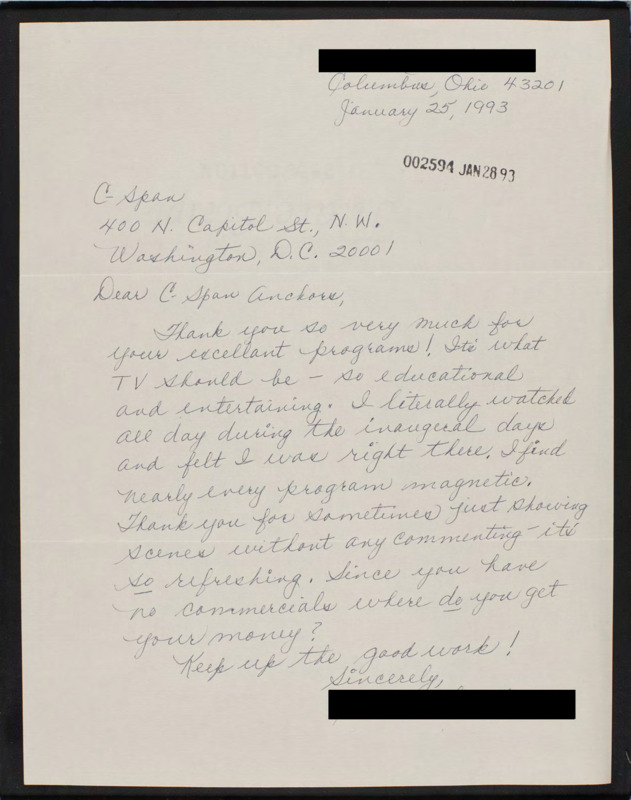 Columbus, Ohio 43201
January 25, 1993
002594 JAN 28 93
C-Span
400 N. Capitol St., N.W.
Washington, D.C. 20001
Dear C-Span Anchors,
Thank you so very much for
your excellant programs! It's what
TV should be – so educational
and entertaining. I literally watched
all day during the inaugeral days
and felt I was right there. I find
nearly every program magnetic.
Thank you for sometimes just showing
scenes without any commenting – it's
so refreshing. Since you have
no commercials where do you get
your money?
Keep up the good work!
Sincerely,